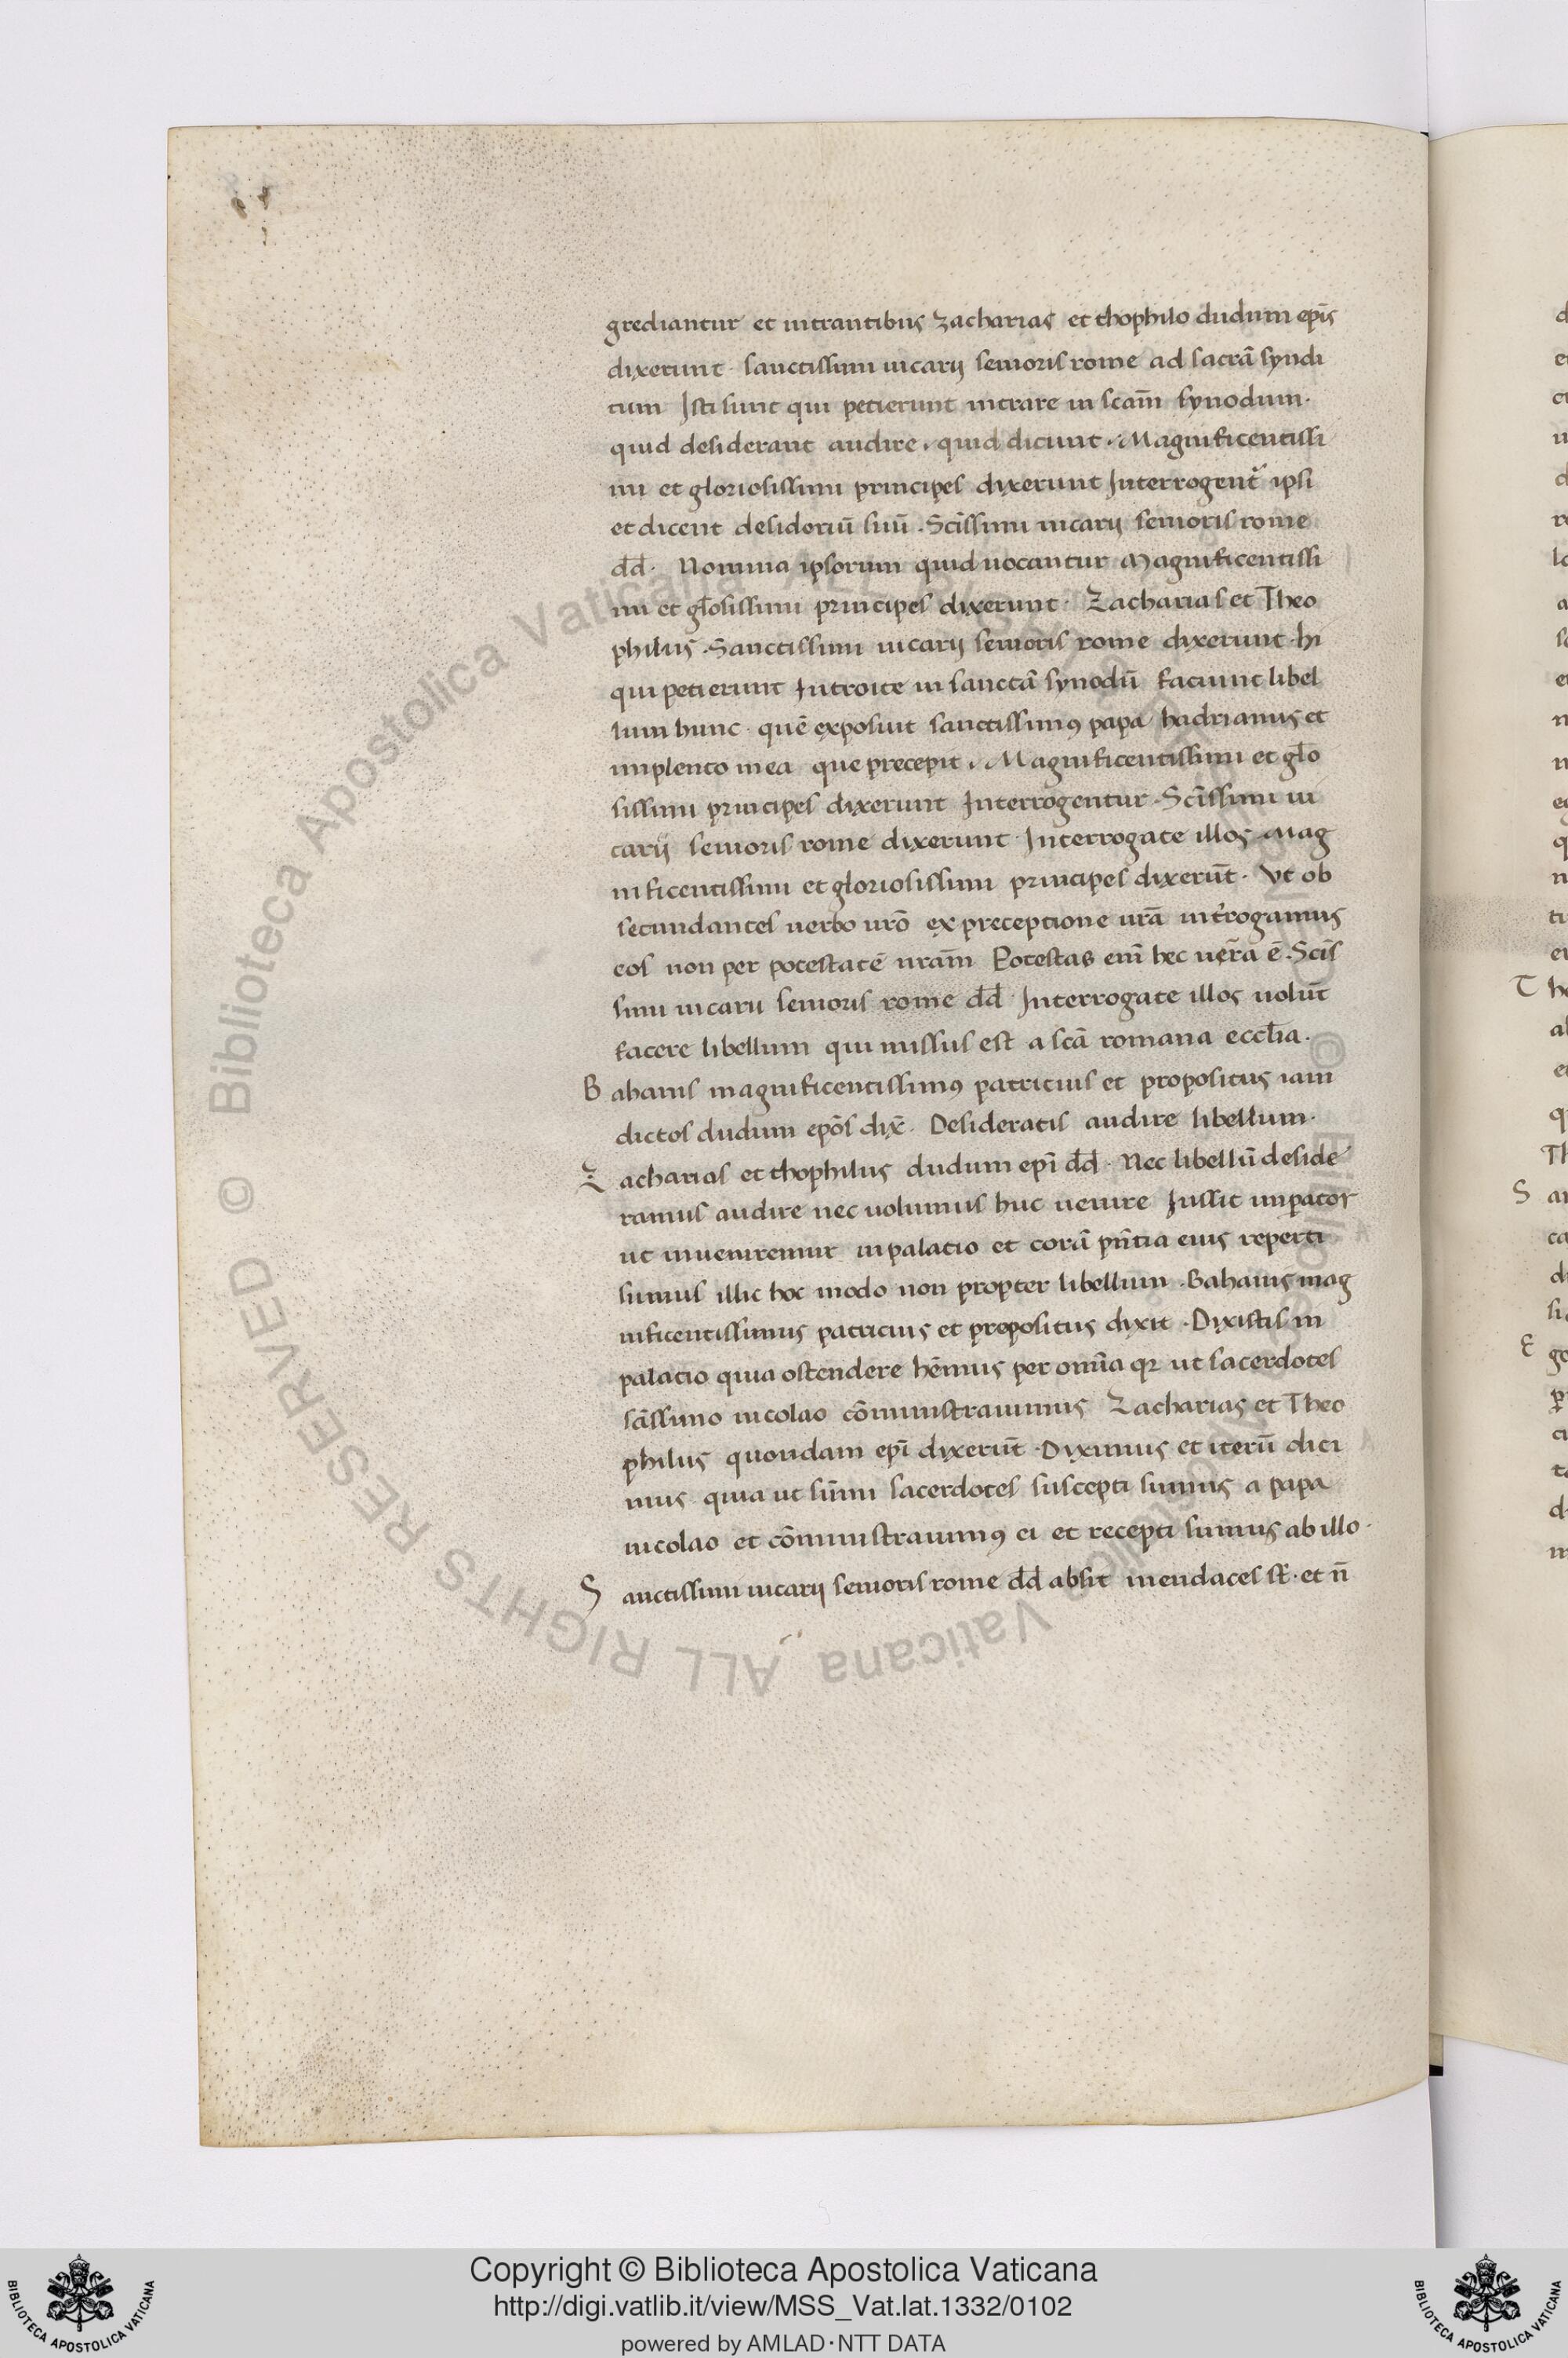 grediantur et intrantibus zacharias et thophilo dudum ep̄is
dixerunt · sanctissimi uicarij senioris rome ad sacrā syndi
tum Isti sunt qui petierunt intrare in scam̄ synodum ·
quid desiderant audire · quid dicunt · Magnificentissi
mi et gloriosissimi principes dixerunt Interrogent᷑ ipsi
et dicent desideriū suū · Sc̄issimi uicarij senioris rome
dd̄ · Nomina ipsorum quid uocantur Magnificentissi
mi et gl̄osissimi principes dixerunt · Zacharias et Theo
philus · Sanctissimi uicarij senioris rome dixerunt · hi
qui petierunt Introite in sanctā synodū faciunt libel
lum hunc · quē exposuit sanctissimꝰ papa hadrianus et
implento in ea que precepit · Magnificentissimi et gl̄o
sissimi principes dixerunt Interrogentur · Sc̄issimi ui
carij senioris rome dixerunt · Interrogate illos Mag
nificentissimi et gloriosissimi principes dixerūt · Vt ob
secundantes uerbo ur̄o ex preceptione ur̄a int̄rogamus
eos non per potestatē nr̄am Potestas eni᷑ hec ues̄ra ē · Sc̄is
simi uicarii senioris rome dd̄ · Interrogate illos uolūt
facere libellum qui missus est a scā romana eccl̄ia ·
Bahanis magnificentissimꝰ patricius et propositus iam
dictos dudum ep̄os dix̄ · Desideratis audire libellum ·
Zacharias et thophilus dudum ep̄i dd̄ · Nec libellū deside
ramus audire nec uolumus huc uenire Iussit imꝑator
ut inueniremur in palatio et corā pn̄tia eius reperti
sumus illic hoc modo non propter libellum · Bahanis mag
nificentissimus patricius et prepositus dixit · Dixistis in
palatio quia ostendere hēmus per omīa qꝛ ut sacerdotes
sc̄issimo nicolao cōministrauimus Zacharias et Theo
philus quondam ep̄i dixerūt · Diximus et iterū dici
mus quia ut sūmi sacerdotes suscepti sumus a papa
nicolao et cōministrauimꝰ ei et recepti sumus ab illo ·
Sanctissimi uicarij senioris rome dd̄ absit mendaces st̄ · et n̄
© Biblioteca Apostolica Vaticana ALL RIGHTS RESERVED
Copyright © Biblioteca Apostolica Vaticana
http://digi.vatlib.it/view/MSS_Vat.lat.1332/0102
powered by AMLAD·NTT DATA
BIBLIOTECA APOSTOLICA VATICANA
BIBLIOTECA APOSTOLICA VATICANA